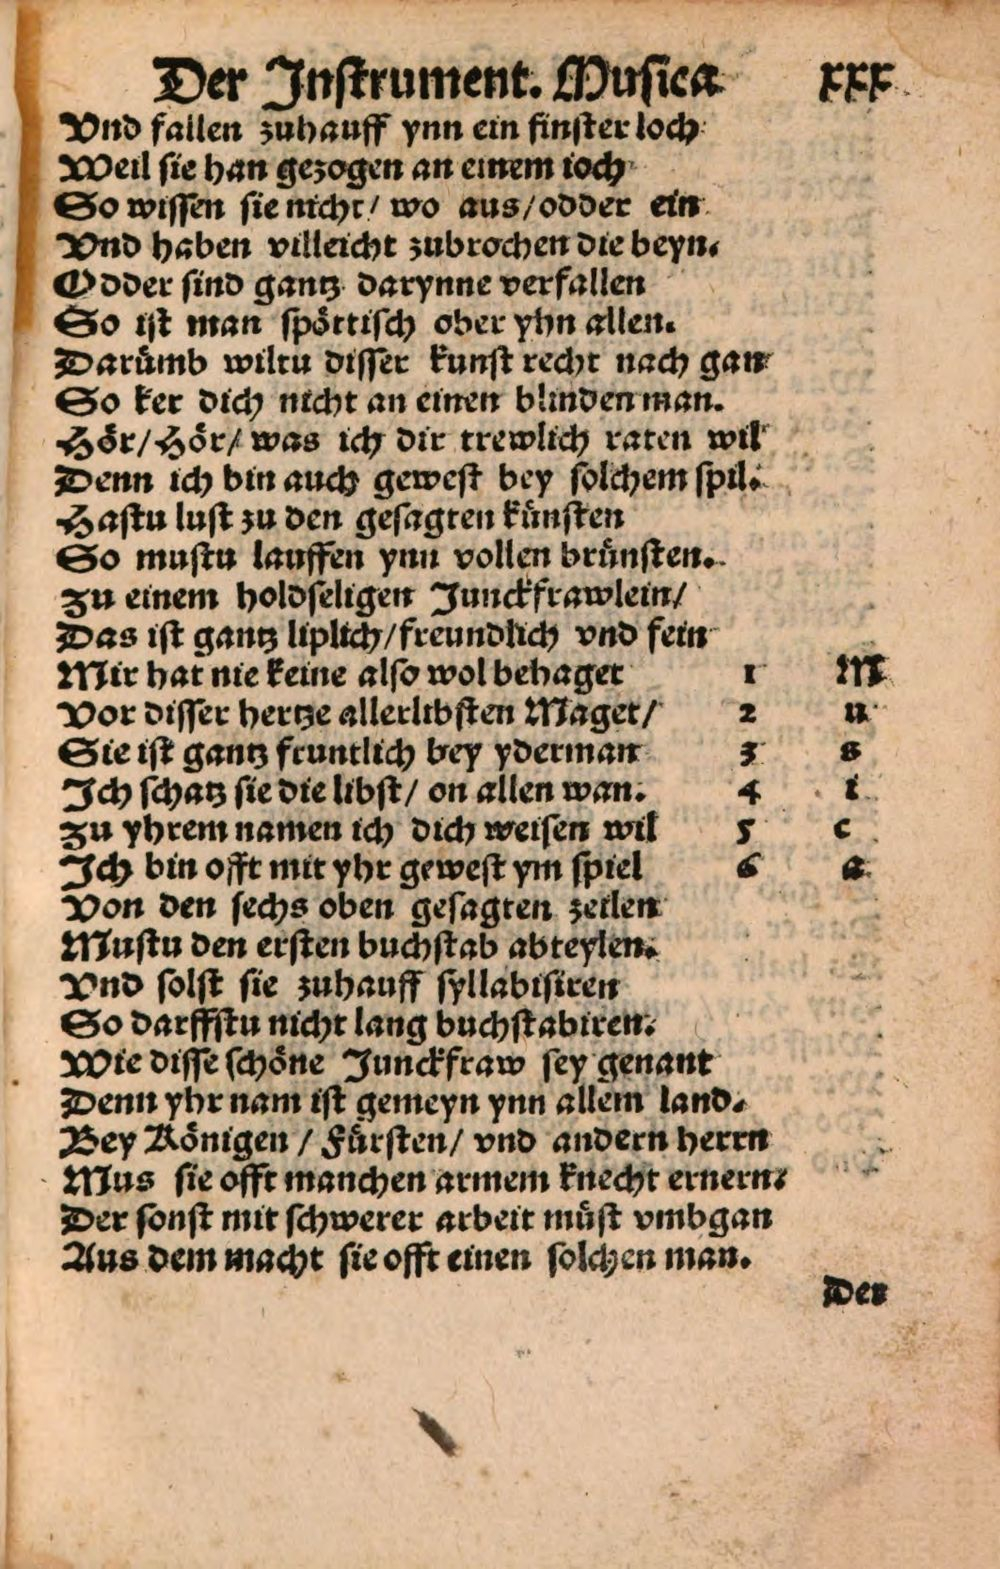 Der Instrument. Musica xxx
Vnd fallen zuhauff ynn ein finster loch
Weil sie han gezogen an einem ioch
So wissen sie nicht / wo aus / odder ein
Vnd haben villeicht zubrochen die beyn.
Odder sind gantz darynne verfallen
So ist man spöttisch ober yhn allen.
Darůmb wiltu disser kunst recht nach gan
So ker dich nicht an einen blinden man.
Hör / Hör / was ich dir trewlich raten wil
Denn ich bin auch gewest bey solchem spil.
Hastu lust zu den gesagten künsten
So mustu lauffen ynn vollen brünsten.
Zu einem holdseligen Junckfrawlein /
Das ist gantz liplich / freundlich vnd fein
Mir hat nie keine also wol behaget 1 M
Vor disser hertze allerlibsten Maget / 2 u
Sie ist gantz fruntlich bey yderman 3 s
Ich schatz sie die libst / on allen wan. 4 i
Zu yhrem namen ich dich weisen wil 5 c
Ich bin offt mit yhr gewest ym spiel 6 a
Von den sechs oben gesagten zeilen
Mustu den ersten buchstab abteylen.
Vnd solst sie zuhauff syllabisiren
So darffstu nicht lang buchstabiren.
Wie disse schöne Junckfraw sey genant
Denn yhr nam ist gemeyn ynn allem land.
Bey Königen / Fürsten / vnd andern herrn
Mus sie offt manchen armem knecht ernern.
Der sonst mit schwerer arbeit müst vmbgan
Aus dem macht sie offt einen solchen man.
Der